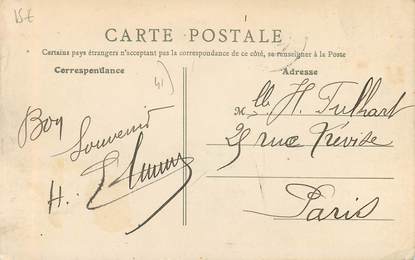 15€
CARTE POSTALE
Certains pays étrangers n'acceptant pas la correspondance de ce côté, se renseigner à la Poste
Correspondance
41)
Bon
Souvenir
H.
Adresse
Mlle H. Fulhart
25 rue Trévise
Paris